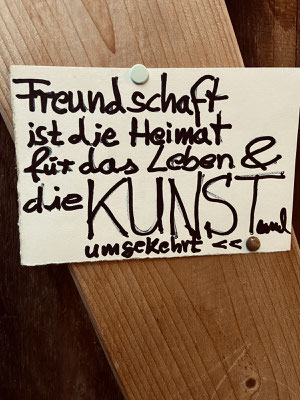 Freundschaft
ist die Heimat
für das Leben &
die KUNST und
umgekehrt <<